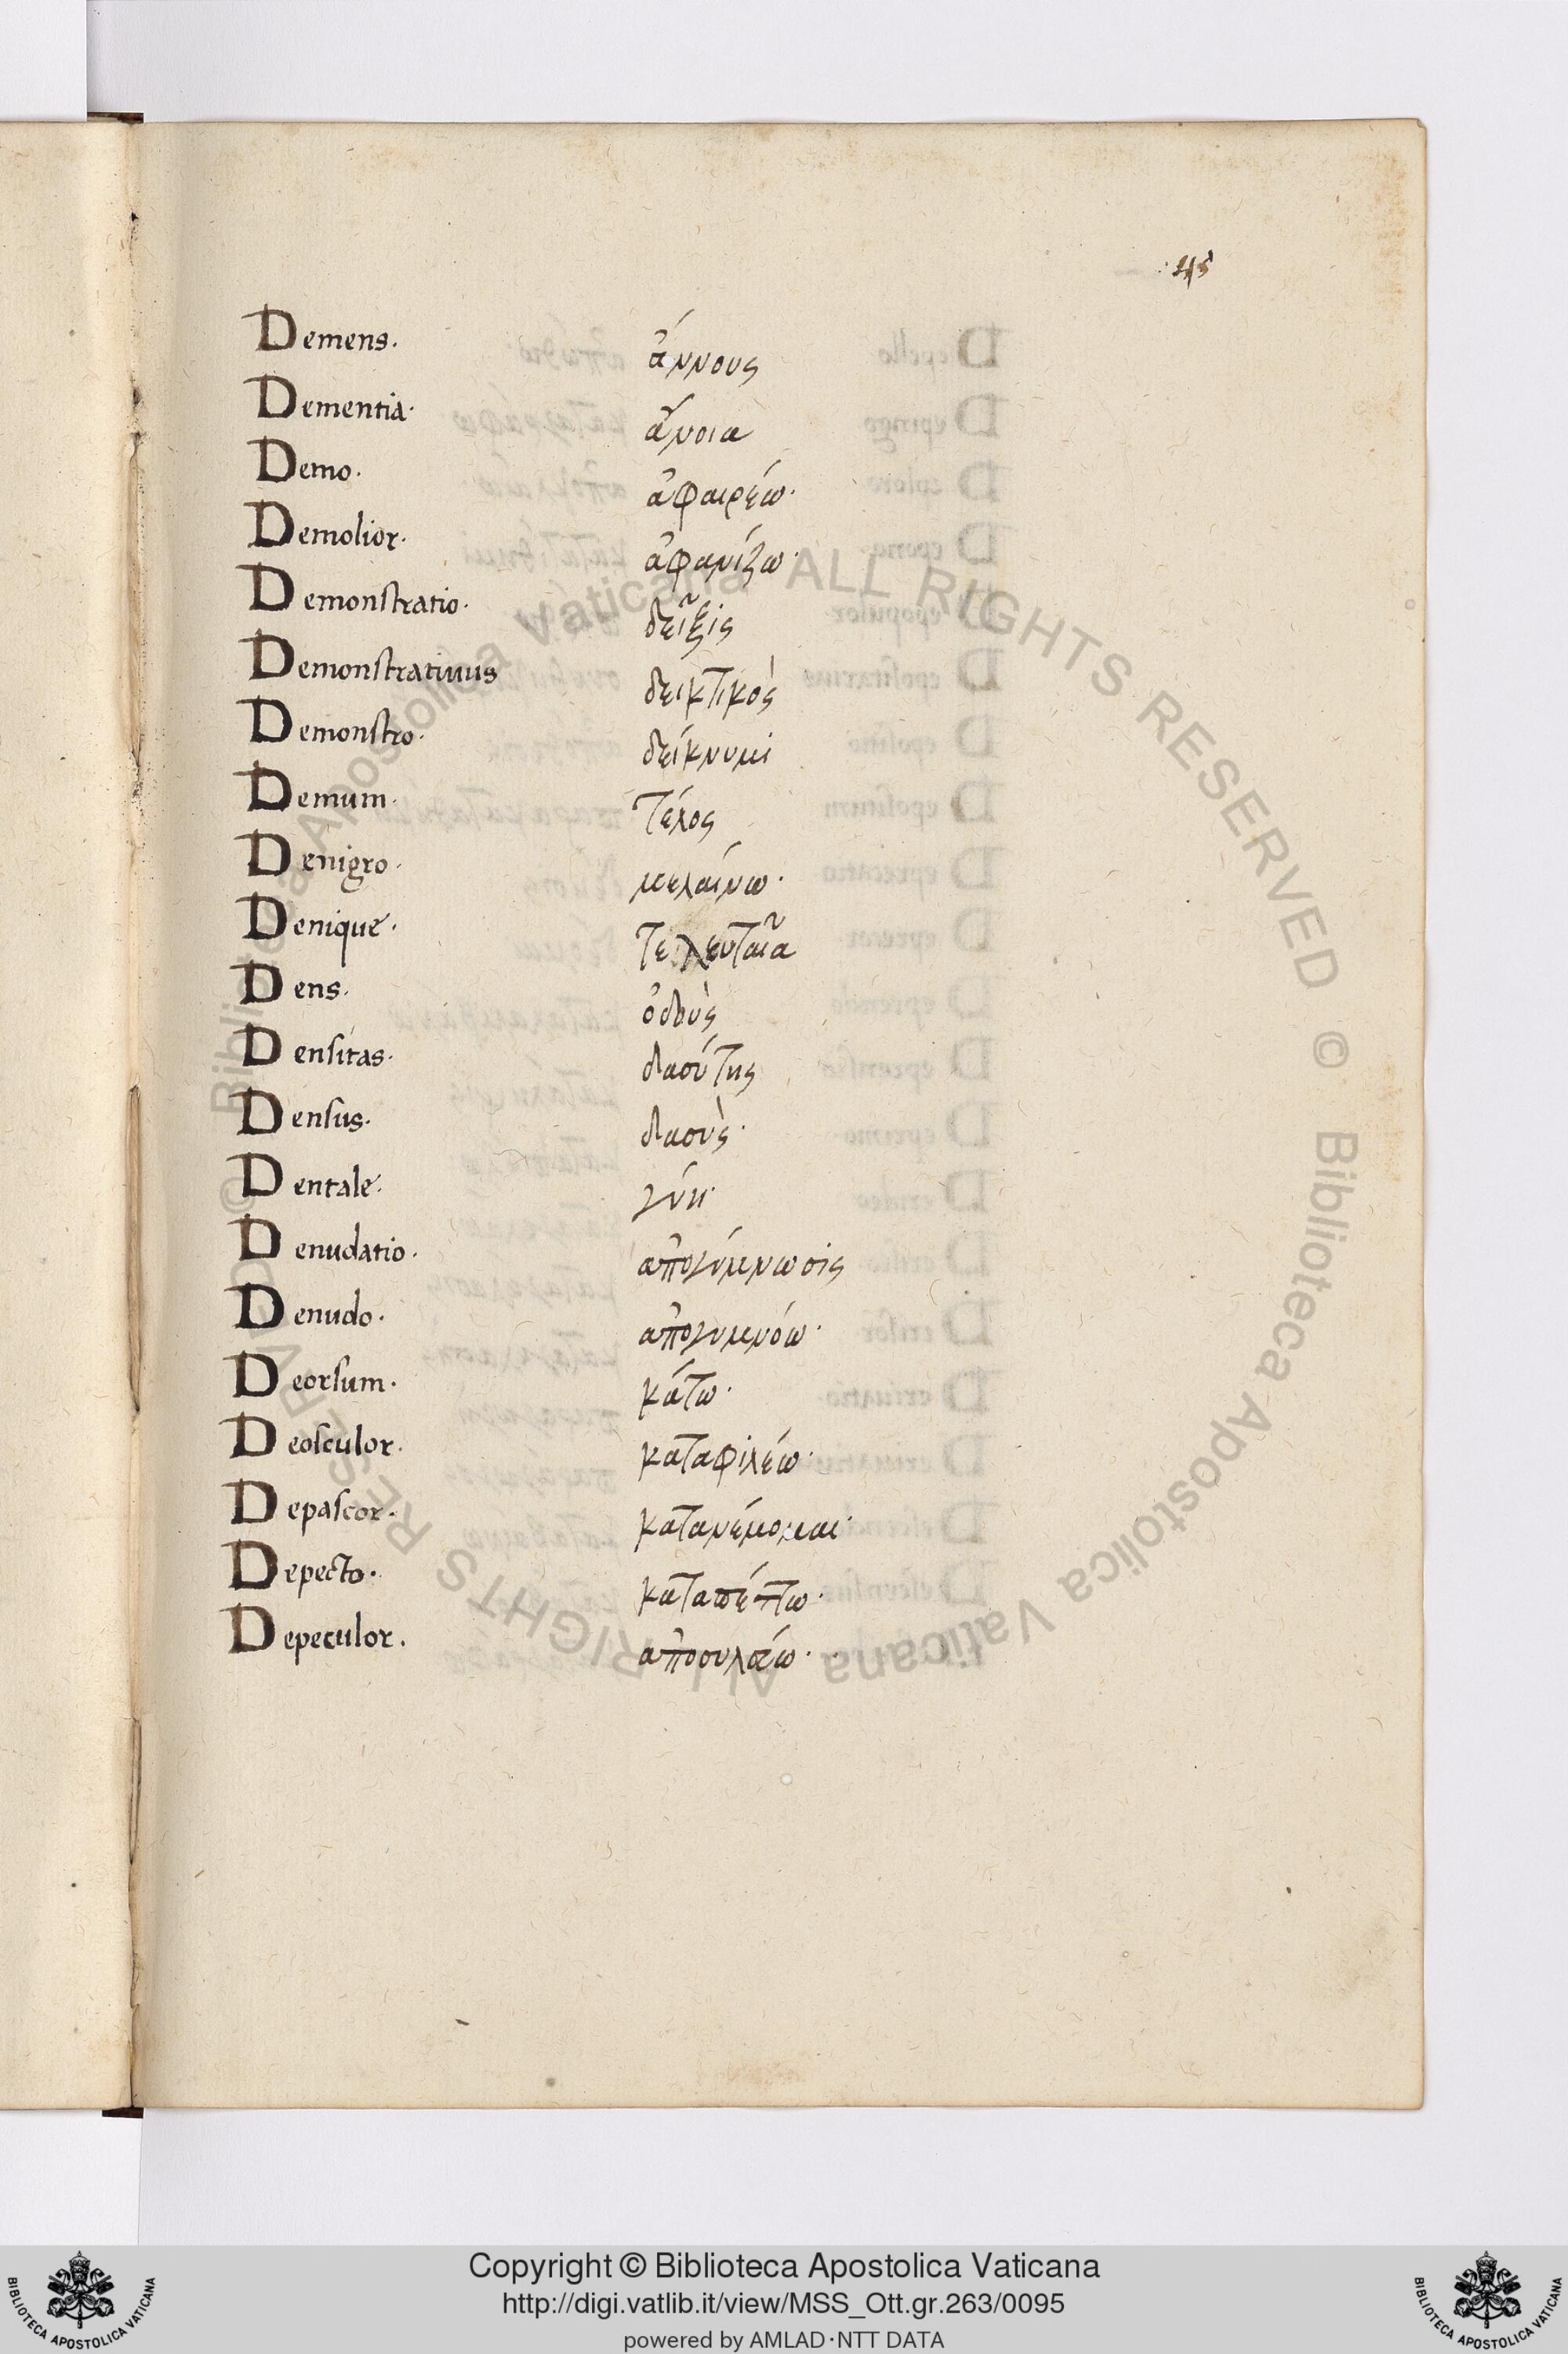 45
Demens. ἄννους
Dementia. ἄνοια
Demo. ἀφαιρέω.
Demolior. ἀφανίζω.
Demonstratio. δεῖξις
Demonstratiuus δεικτικὸς
Demonstro. δείκνυμι
Demum. τέλος
Denigro. μελαίνω.
Denique. τελευταῖα
Dens. ὀδοὺς
Densitas. δασύτης
Densus. δασὺς.
Dentale. γύη.
Denudatio. ἀπογύμνωσις
Denudo. ἀπογυμνόω.
Deorsum. κάτω.
Deosculor. καταφιλέω.
Depascor. κατανέμομαι.
Depecto. καταπέπτω.
Depeculor. ἀποσυλάω.
© Biblioteca Apostolica Vaticana ALL RIGHTS RESERVED © Biblioteca Apostolica Vaticana ALL RIGHTS RESERVED
Copyright © Biblioteca Apostolica Vaticana
http://digi.vatlib.it/view/MSS_Ott.gr.263/0095
powered by AMLAD·NTT DATA
BIBLIOTECA APOSTOLICA VATICANA
BIBLIOTECA APOSTOLICA VATICANA